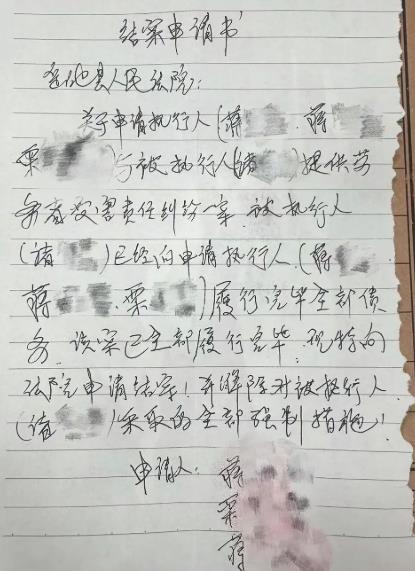 结案申请书
县人民法院：
关于申请执行人(蒋 、蒋
栗 )与被执行人(诸 )提供劳
务者受害责任纠纷一案，被执行人
(诸 )已经向申请执行人(蒋
蒋 、栗 )履行完毕全部债
务，该案已全部履行完毕，现特向
法院申请结案！并解除对被执行人
(诸 )采取的全部强制措施！
申请人：蒋
栗
蒋